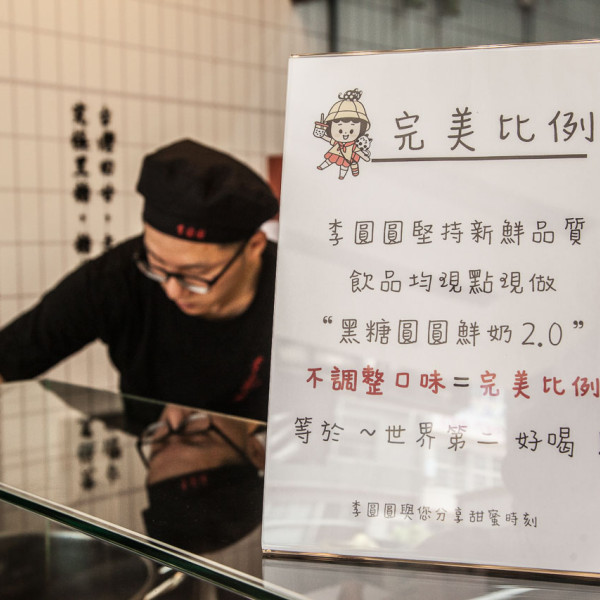 完美比例
李圓圓堅持新鮮品質
飲品均現點現做
“黑糖圓圓鮮奶2.0”
不調整口味=完美比例
等於～世界第二 好喝！
李圓圓與您分享甜蜜時刻